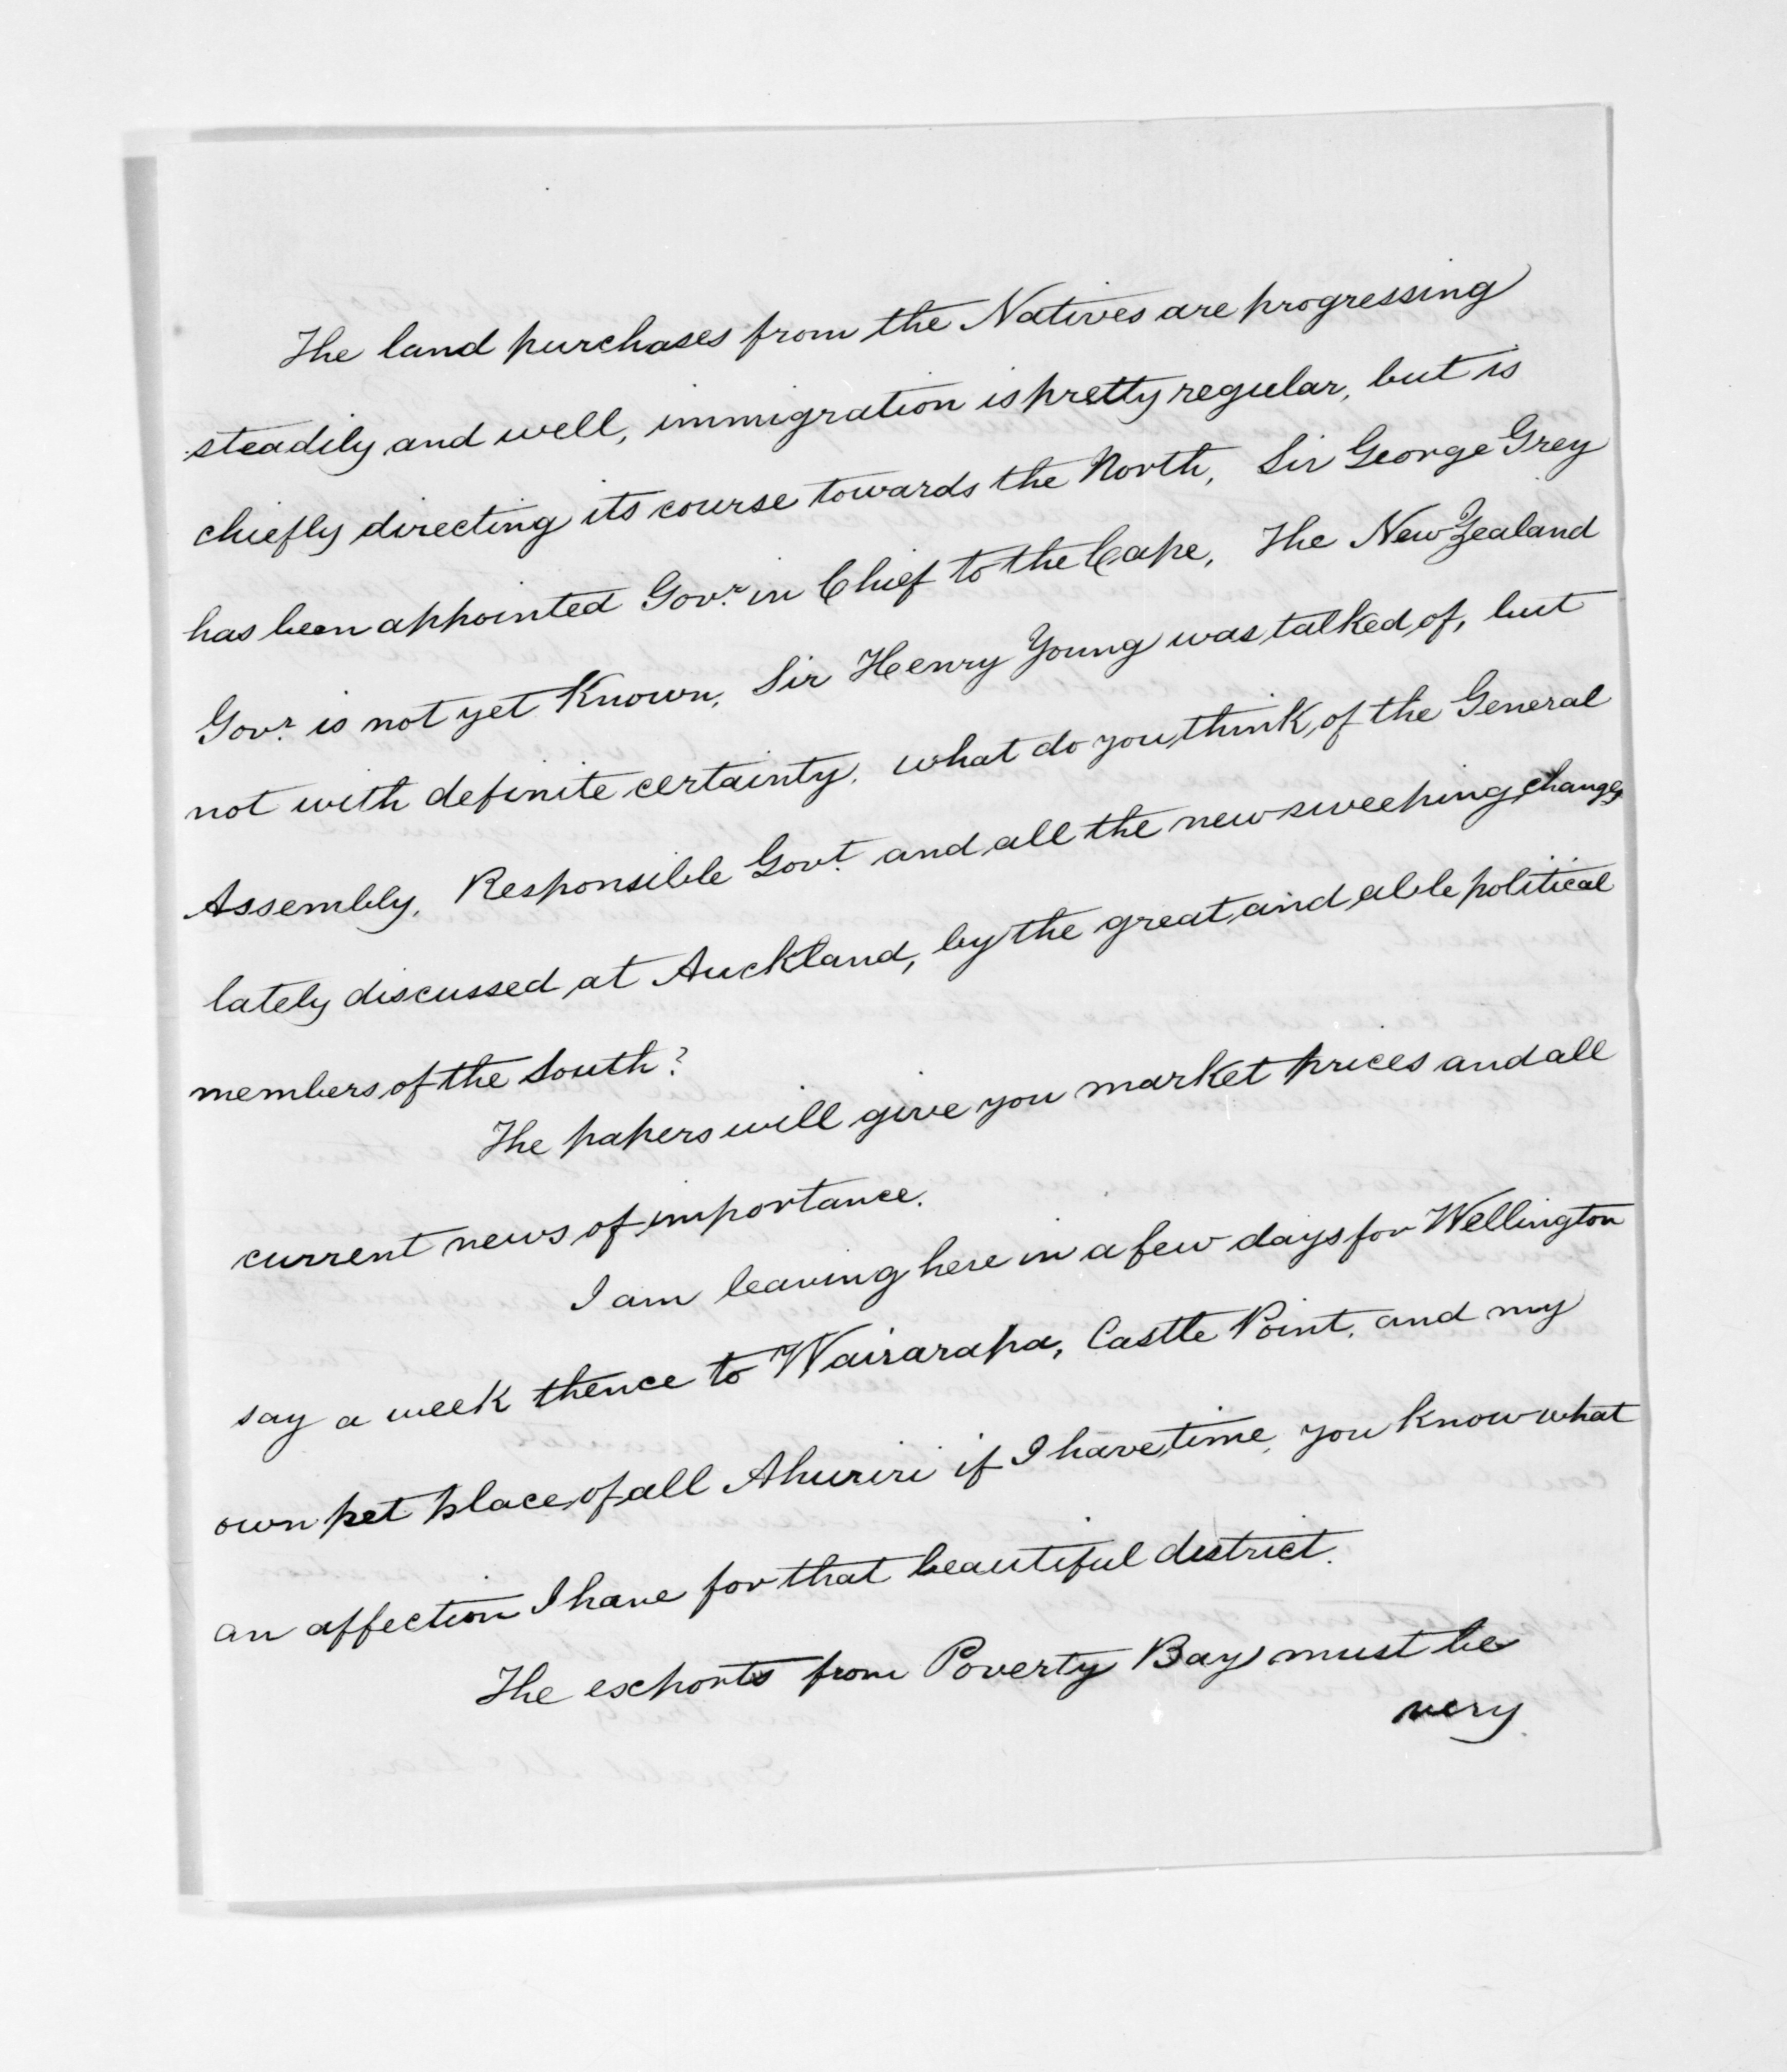 The land purchases from the Natives are progressing
steadily and well, immigration is pretty regular, but is
chiefly directing its course towards the North, Sir George Grey
has been appointed Govr. in Chief to the Cape, The New Zealand
Govr. is not yet Known, Sir Henry Young was talked of, but
not with definite certainty. what do you think, of the General
Assembly, Responsible Govt. and all the new sweeping changes
lately discussed at Auckland, by the great and able political
members of the South?
The papers will give you market prices and all
current news of importance.
I am leaving here in a few days for Wellington
say a week thence to Wairarapa, Castle Point, and my
own pet place of all Ahuriri if I have time, you know what
an affection I have for that beautiful district.
The exports from Poverty Bay must be
very